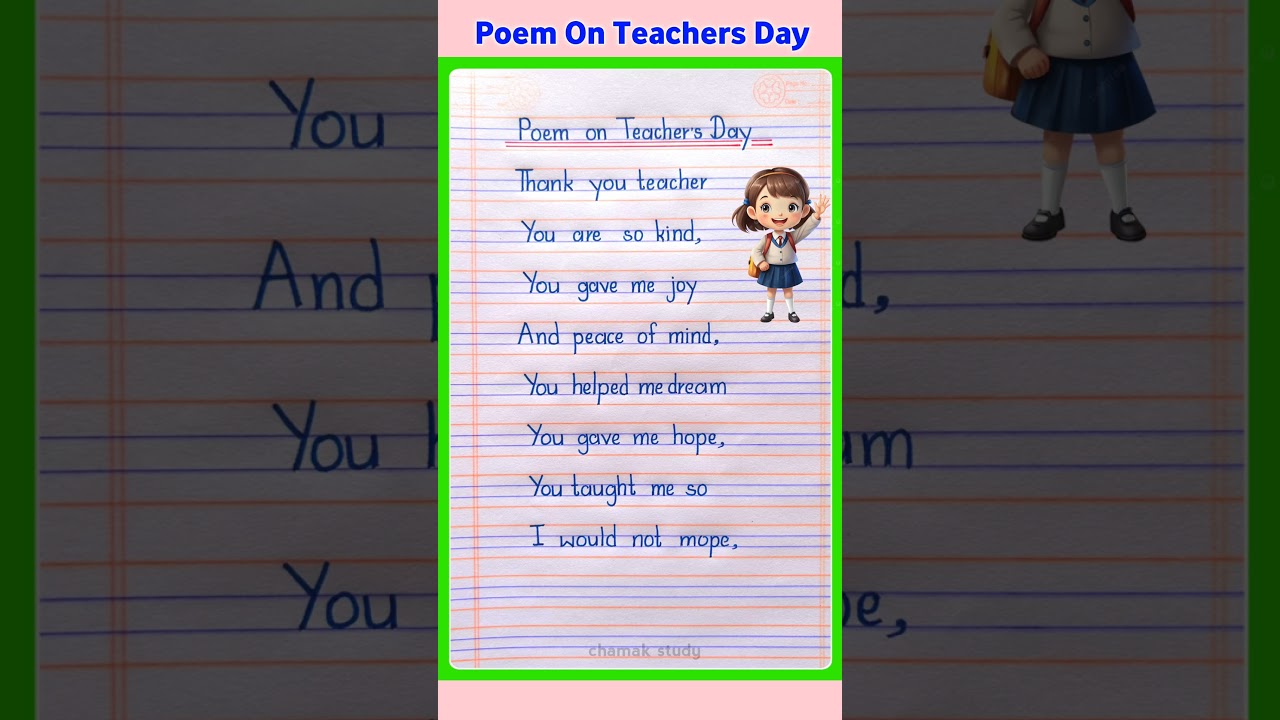 Poem On Teachers Day
Poem on Teacher's Day
Thank you teacher
You are so kind,
You gave me joy
And peace of mind,
You helped me dream
You gave me hope,
You taught me so
I would not mope,
chamak study